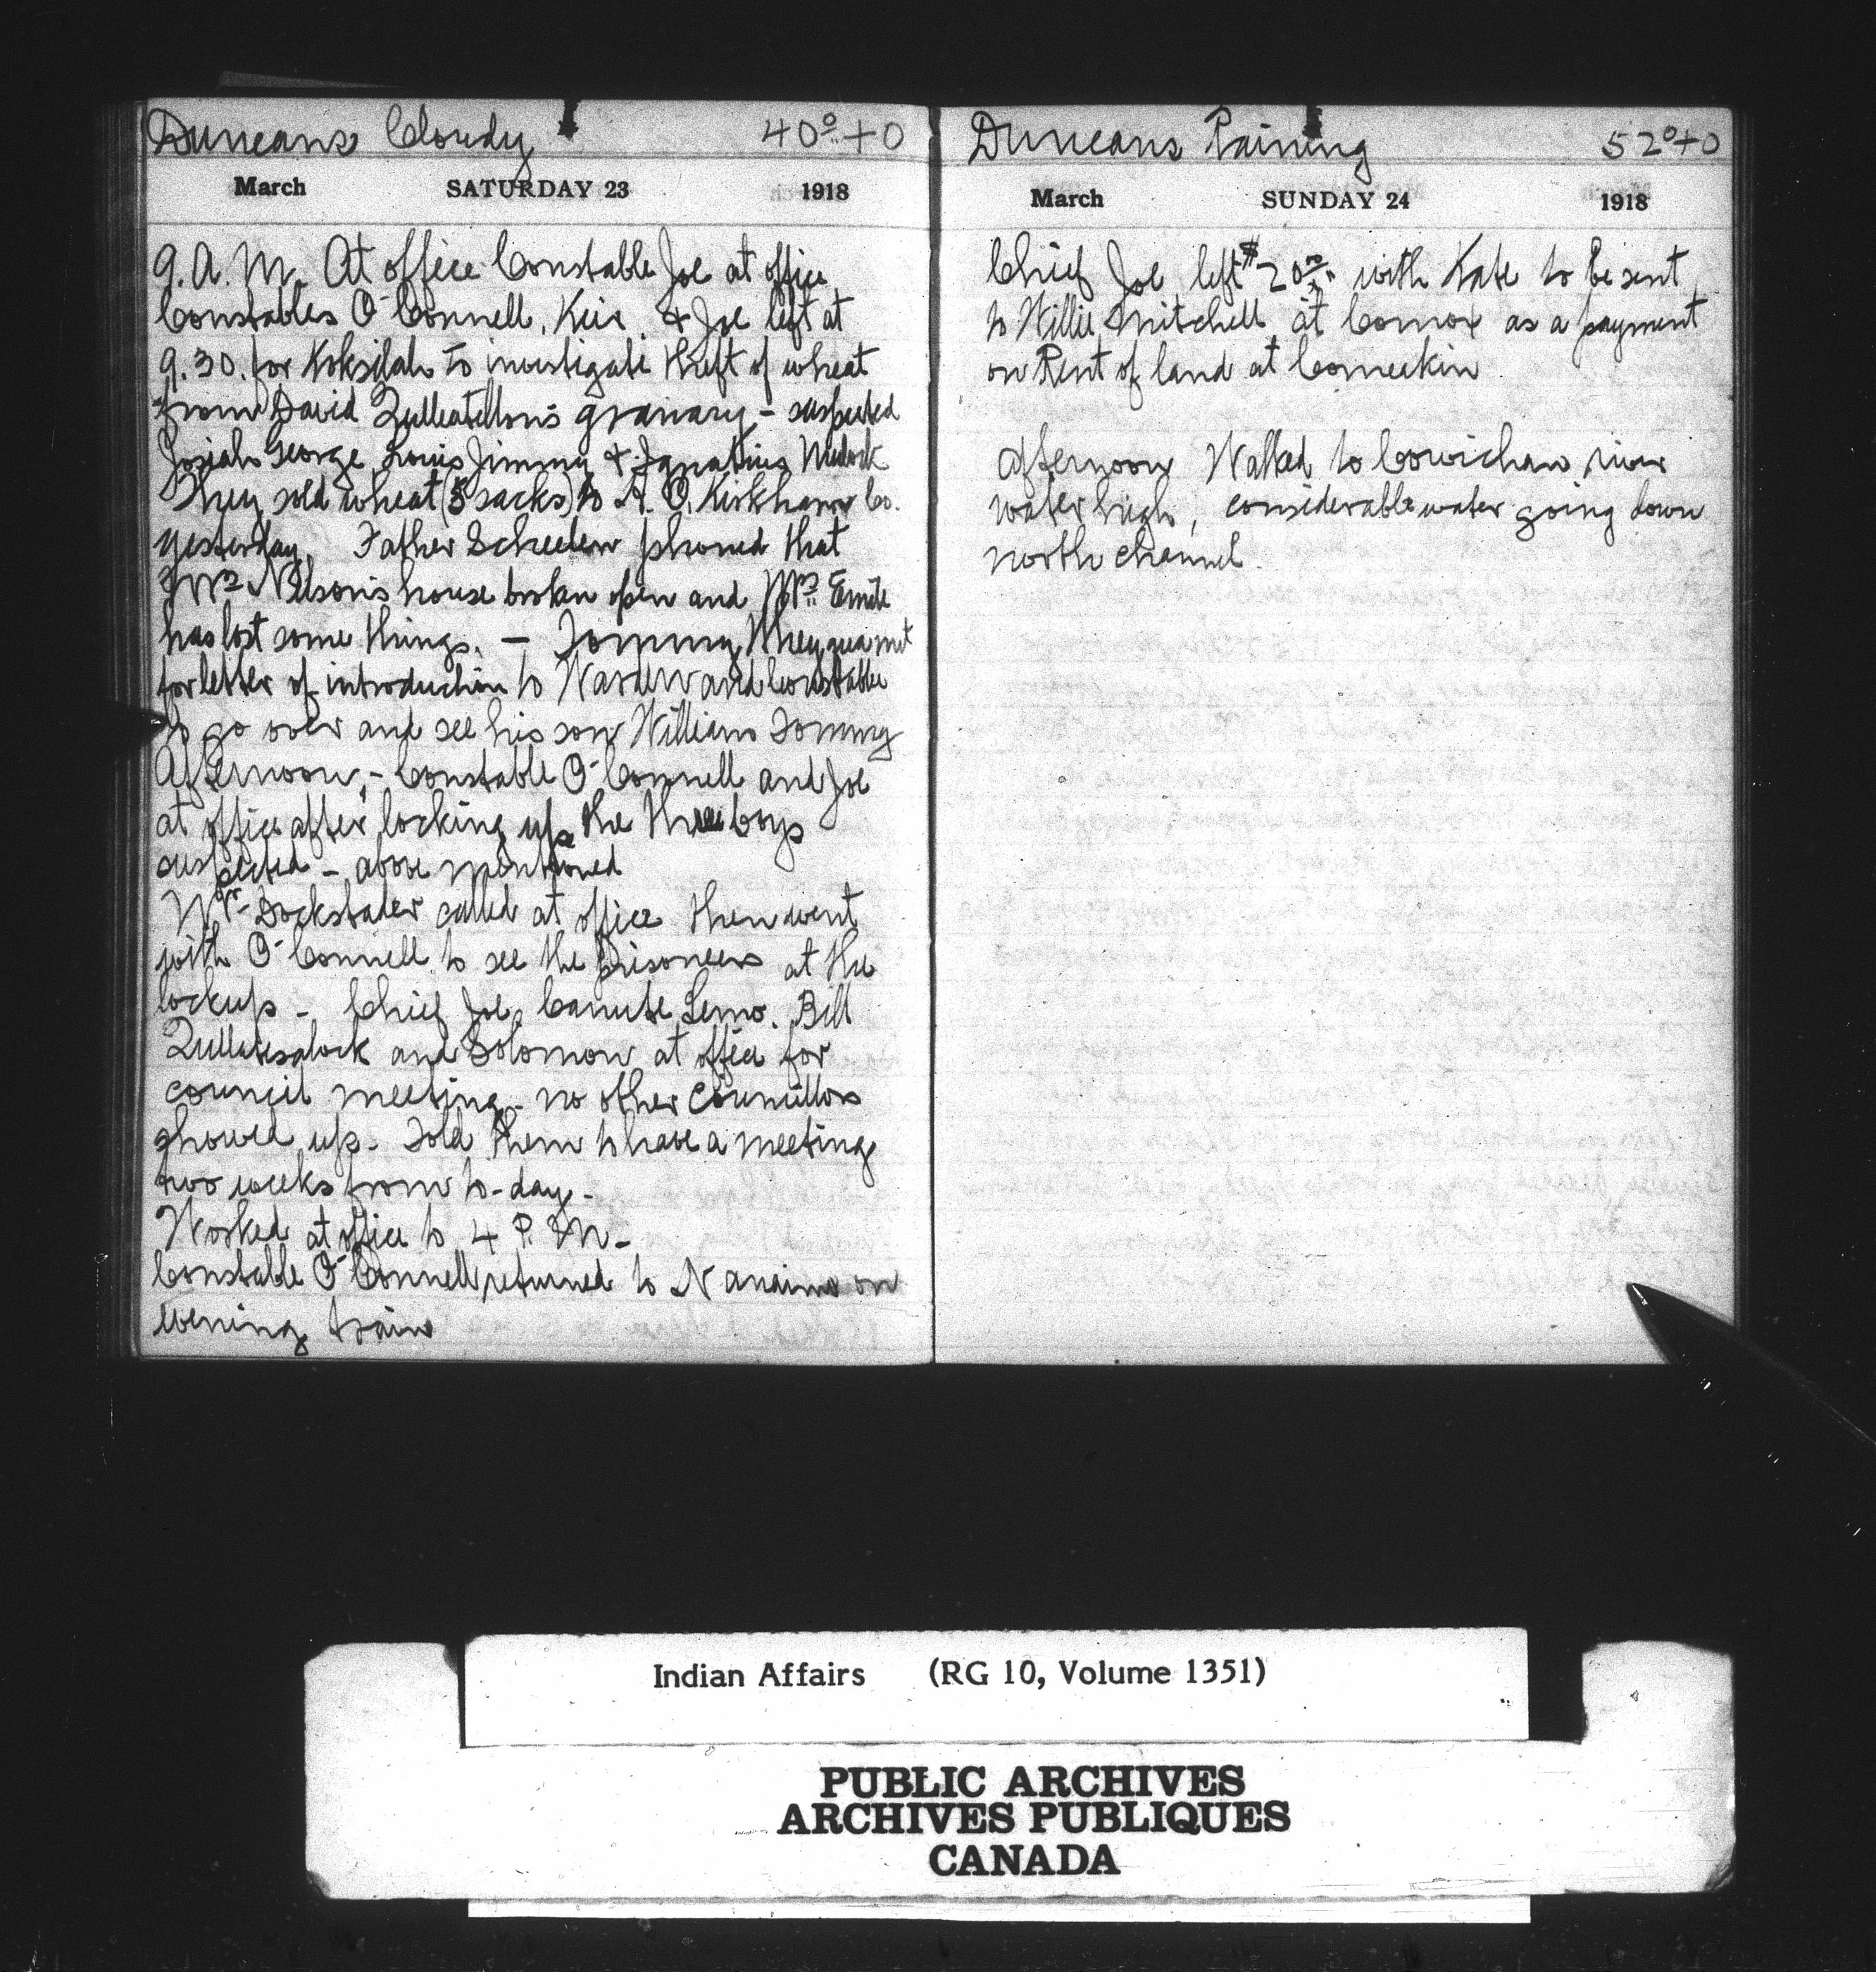 Duncans Cloudy 40° + 0
March SATURDAY 23 1918
9. A. M. At office Constable Joe at office
Constables O'Connell, Keir, & Joe left at
9.30. for Koksilah to investigate theft of wheat
from David granary - suspected
Josiah George, Louis Jimmy & Ignatius
They sold wheat (5 sacks) to A. O. Kirkham Co.
yesterday. Father Scheelen phoned that
Mrs Nelson's house broken open and Mrs Emile
has lost some things. - Tommy
for letter of introduction to Warden and Constable
to go over and see his son William Tommy
Afternoon, - Constable O'Connell and Joe
at office after locking up the three boys
suspected - above mentioned
Mr. Dockstader called at office then went
with O'Connell to see the prisoners at the
lockup - Chief Joe, Canute Lemo. Bill
and Solomon at office for
council meeting - no other Councillors
showed up. Told them to have a meeting
two weeks from to-day -
Worked at office to 4 P. M. -
Constable O'Connell returned to Nanaimo on
evening train
Duncans Raining 52° + 0
March SUNDAY 24 1918
Chief Joe left $20 with Kate to be sent
to Willie Mitchell at Comox as a payment
on Rent of land at Comeekin
Afternoon Walked to Cowichan river
water high, considerable water going down
north channel.
Indian Affairs (RG 10, Volume 1351)
PUBLIC ARCHIVES
ARCHIVES PUBLIQUES
CANADA